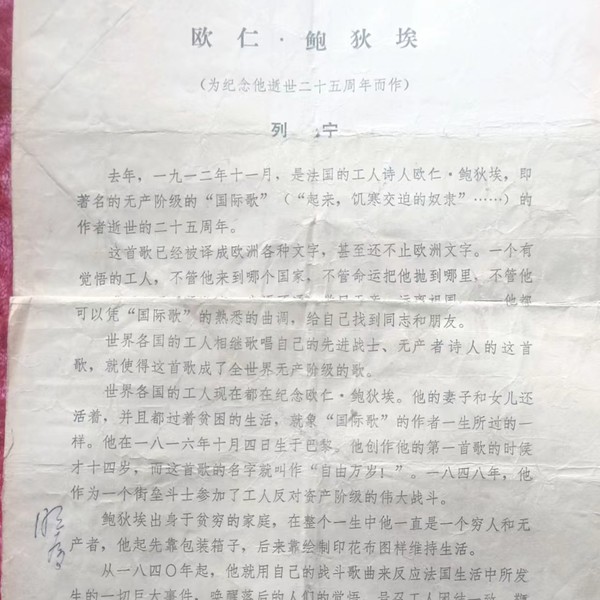 欧仁·鲍狄埃
（为纪念他逝世二十五周年而作）
列 宁
去年，一九一二年十一月，是法国的工人诗人欧仁·鲍狄埃，即
著名的无产阶级的“国际歌”（“起来，饥寒交迫的奴隶”……）的
作者逝世的二十五周年。
这首歌已经被译成欧洲各种文字，甚至还不止欧洲文字。一个有
觉悟的工人，不管他来到哪个国家，不管命运把他抛到哪里，不管他
他都
可以凭“国际歌”的熟悉的曲调，给自己找到同志和朋友。
世界各国的工人相继歌唱自己的先进战士、无产者诗人的这首
歌，就使得这首歌成了全世界无产阶级的歌。
世界各国的工人现在都在纪念欧仁·鲍狄埃。他的妻子和女儿还
活着，并且都过着贫困的生活，就象“国际歌”的作者一生所过的一
样。他在一八一六年十月四日生于巴黎。他创作他的第一首歌的时候
才十四岁，而这首歌的名字就叫作“自由万岁！”。一八四八年，他
作为一个街垒斗士参加了工人反对资产阶级的伟大战斗。
鲍狄埃出身于贫穷的家庭，在整个一生中他一直是一个穷人和无
产者，他起先靠包装箱子，后来靠绘制印花布图样维持生活。
从一八四〇年起，他就用自己的战斗歌曲来反应法国生活中所发
生的一切巨大事件，唤醒落后的人们的觉悟，号召工人团结一致，鞭